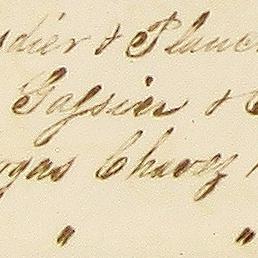 dier & Planc
Gassier &
gas Chavez
" "